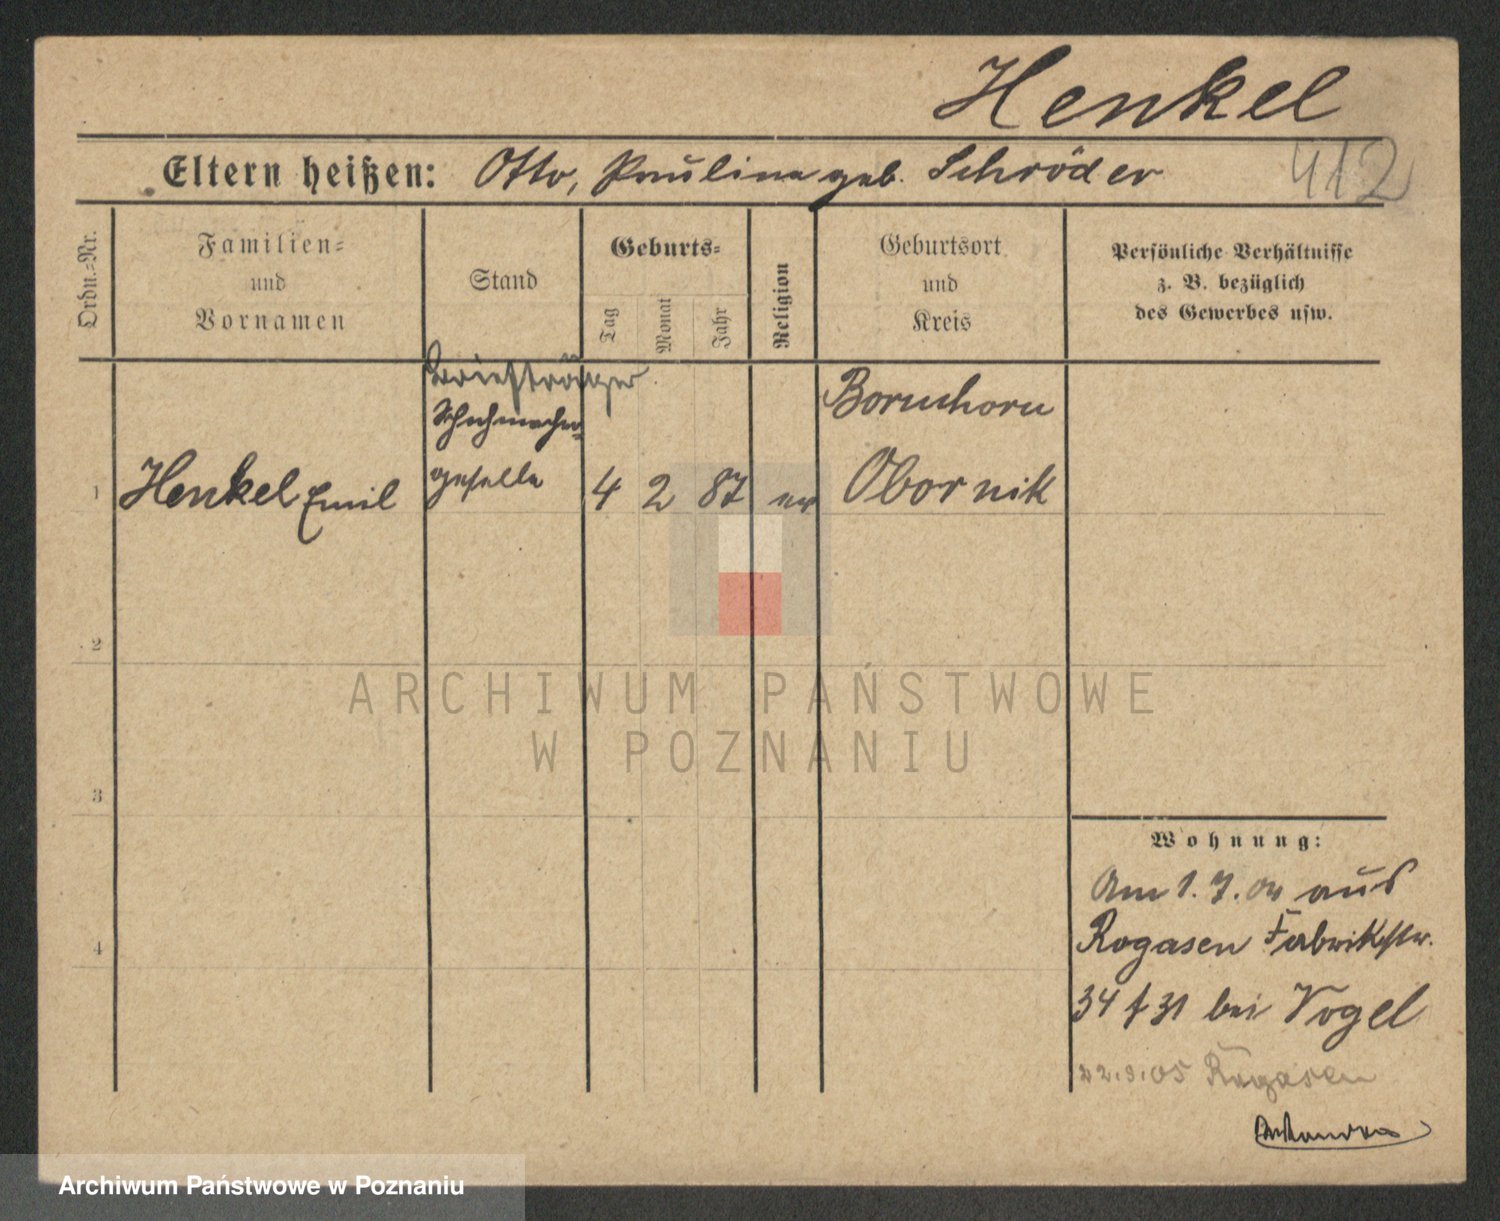 Henkel
412
Eltern heißen: Otto, Paulina geb. Schröder
Ordn.=Nr.
Familien=
und
Vornamen
Stand
Geburts=
Tag
Monat
Jahr
Religion
Geburtsort
und
Kreis
Persönliche Verhältnisse
z. B. bezüglich
des Gewerbes usw.
Briefträger
Schuhmacher
geselle
1
Henkel Emil
4 2 87 ev
Obornik
2
3
4
ARCHIWUM PAŃSTWOWE
W POZNANIU
Wohnung:
Am 1. 7. 04 aus
Rogasen Fabrikstr.
34 31 bei Vogel
22.9.05 Rogasen
Archiwum Państwowe w Poznaniu